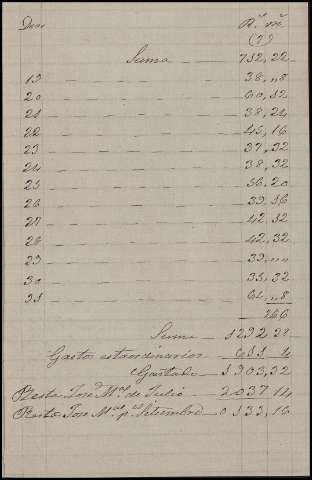 Dias Rs. ms.
(9)
Suma 732,22
19 38,,8
20 60,12
21 38,24
22 45,16
23 37,32
24 38,32
25 56,20
26 33,16
27 42,12
28 42,32
29 33,,,,
30 35,32
31 61,,8
266
Suma 1292 28
Gastos estraordinarios 611 4
Gastado 1903,32
Resta José Ml. de Julio 2037 14
Resta José Ml. pa. Setembre 0133,16